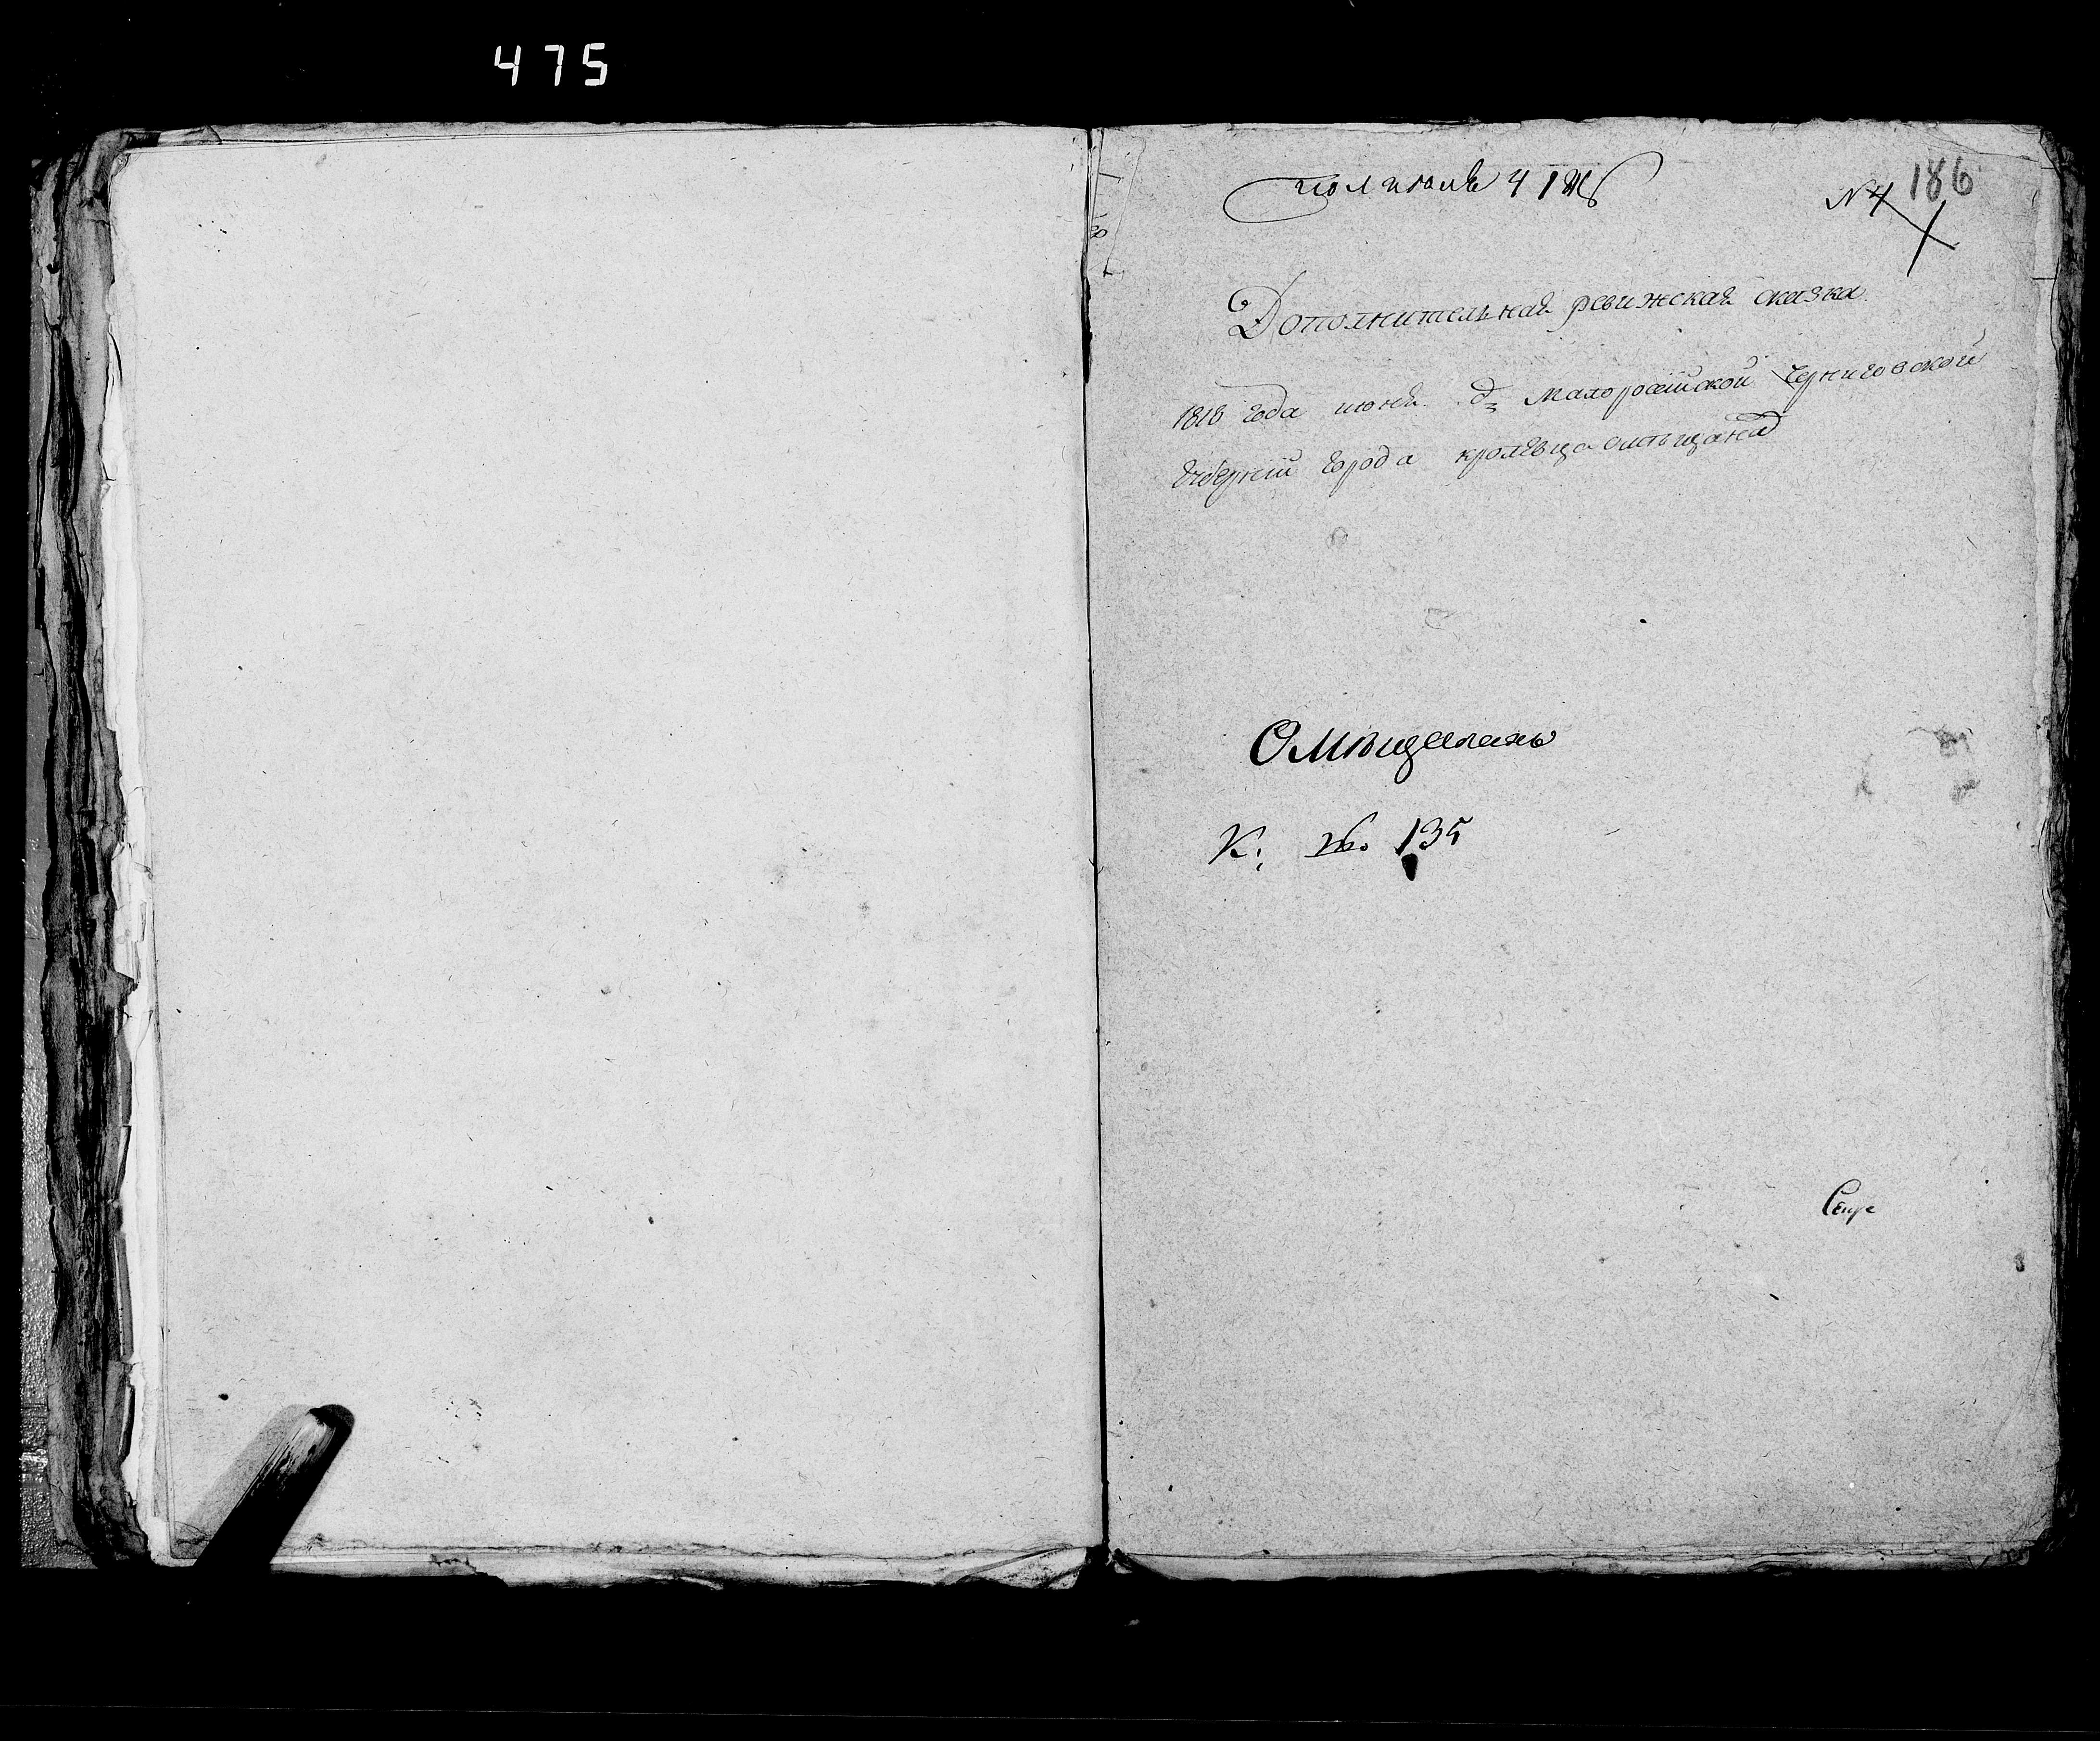 475
186
пол июля 4 1818
№ 4
Дополнительная ревижская сказка
1818 года июня Малоросійской Черниговской
Губерніи города кролевца омѣщанахъ
Омѣщанахъ
К: № 135